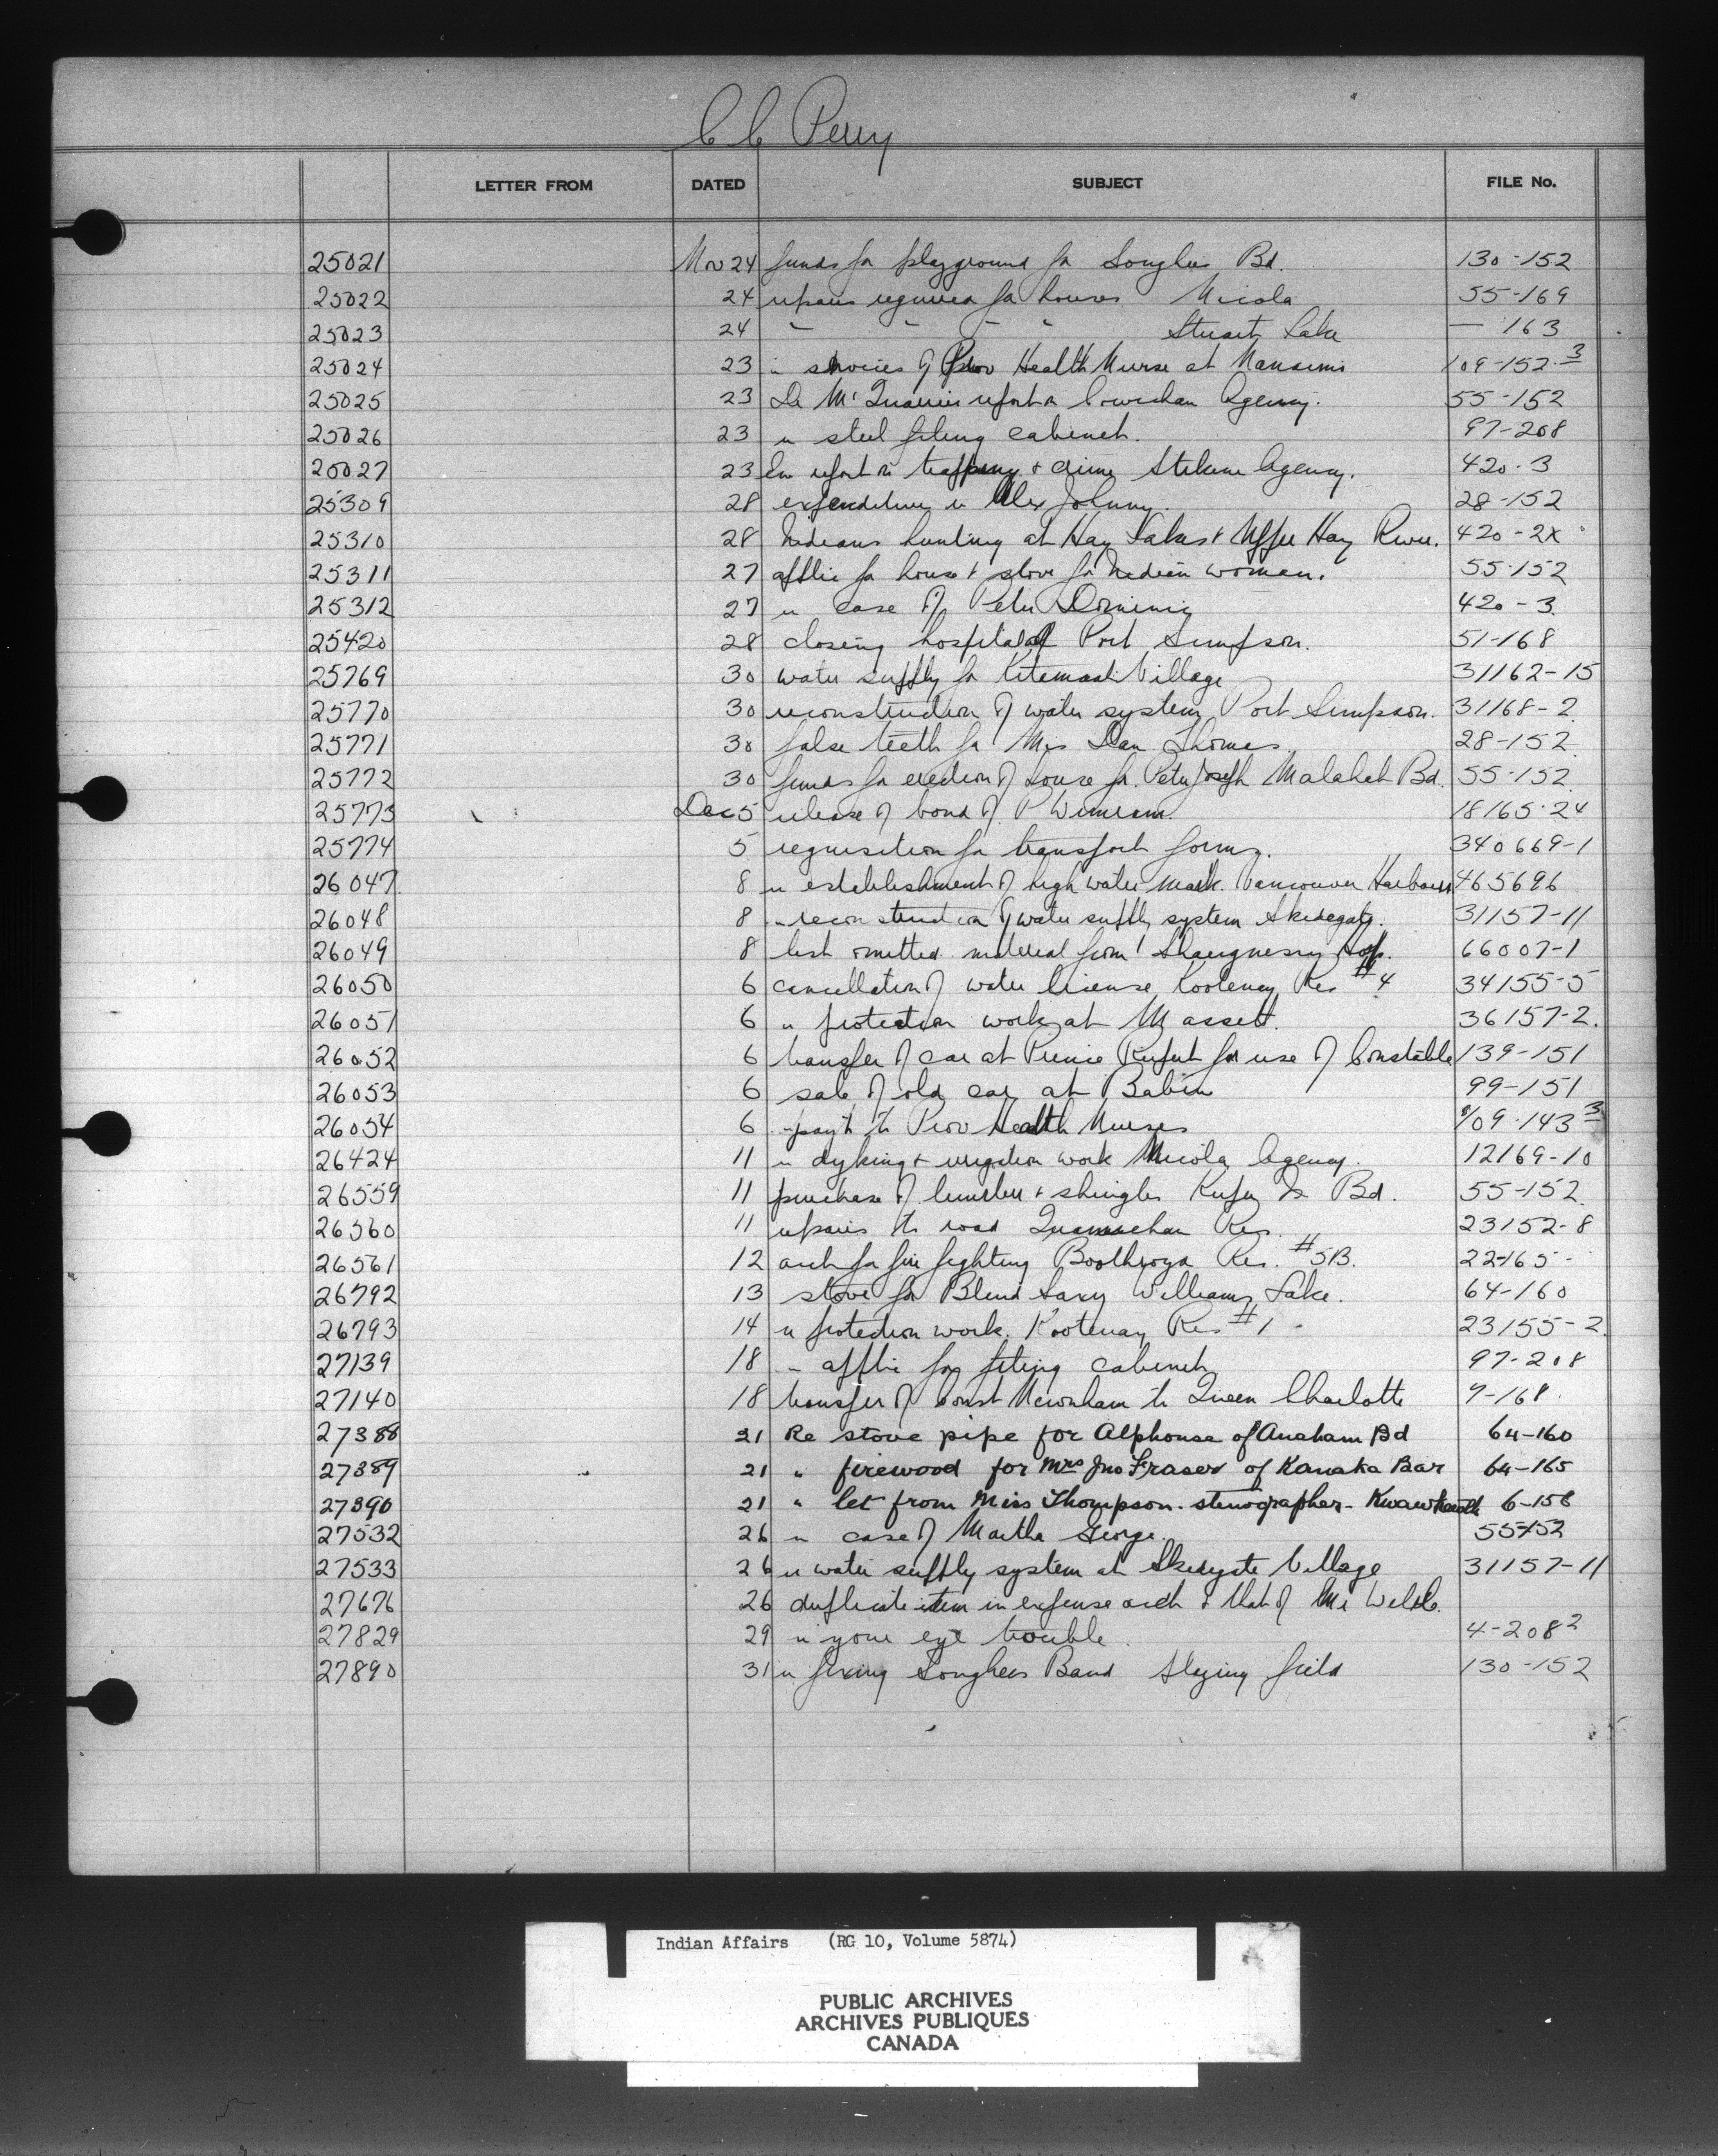 C C Perry
LETTER FROM DATED SUBJECT FILE No.
25021 Nov 24 funds for playground for Songhees Bd. 130-152
25022 24 repairs required for houses Nicola 55-169
25023 24 " " " " Stuart Lake — 163
25024 23 re services of Prov Health Nurse at Nanaimo 109-152-3
25025 23 Dr McQuarrie report on Cowichan Agency. 55-152
25026 23 re steel filing cabinet. 97-208
20027 23 report on trapping & Stikine Agency. 420-3
25309 28 expenditure re Alex Johnny. 28-152
25310 28 Indians hunting at Hay Lakes & Upper Hay River. 420-2X
25311 27 applic for house & stove for Indian woman. 55-152
25312 27 re case of Peter Dominic 420-3
25420 28 closing hospital at Port Simpson. 51-168
25769 30 water supply for Kitamaat Village 31162-15
25770 30 reconstruction of water system Port Simpson. 31168-2
25771 30 false teeth for Mrs Dan Thomas 28-152
25772 30 funds for erection of house for Peter Joseph Malahat Bd. 55-152
25773 Dec 5 release of bond of P 18165-24
25774 5 requisition for transport forms. 340669-1
26047 8 re establishment of high water mark. Vancouver Harbour 465696
26048 8 " reconstruction of water supply system Skidegate. 31157-11
26049 8 list omitted material from Shaughnessy Hosp. 66007-1
26050 6 cancellation of water license, Kootenay Res #4 34155-5
26051 6 " protection work at Massett. 36157-2.
26052 6 transfer of car at Prince Rupert for use of Constable 139-151
26053 6 sale of old car at Babine 99-151
26054 6 " payt to Prov Health Nurses 109-143 3
26424 11 " dyking & irrigation work Nicola Agency. 12169-10
26559 11 purchase of lumber & shingles Kuper Is Bd. 55-152
26560 11 repairs to road Quamichan Res. 23152-8
26561 12 acct for fire fighting Boothroyd Res. #5B. 22165-
26792 13 stove for Blind Williams Lake. 64-160
26793 14 re protection work. Kootenay Res #1 23155-2.
27139 18 " applic for filing cabinet 97-208
27140 18 transfer of Const Newnham to Queen Charlotte 7-168.
27388 21 Re stove pipe for Alphonse of Anaham Bd 64-160
27389 21 " firewood for Mrs Jno Fraser of Kanaka Bar 64-165
27390 21 " let from Miss Thompson. stenographer- Kwawkewlth 6-158
27532 26 " case of Martha George. 55-152
27533 26 re water supply system at Skidegate Village 31157-11
27676 26 duplicate item in expense acct & that of Mr
27829 29 re your eye trouble. 4-208 2
27890 31 re fixing Songhees Band playing field 130-152
Indian Affairs (RG 10, Volume 5874)
PUBLIC ARCHIVES
ARCHIVES PUBLIQUES
CANADA